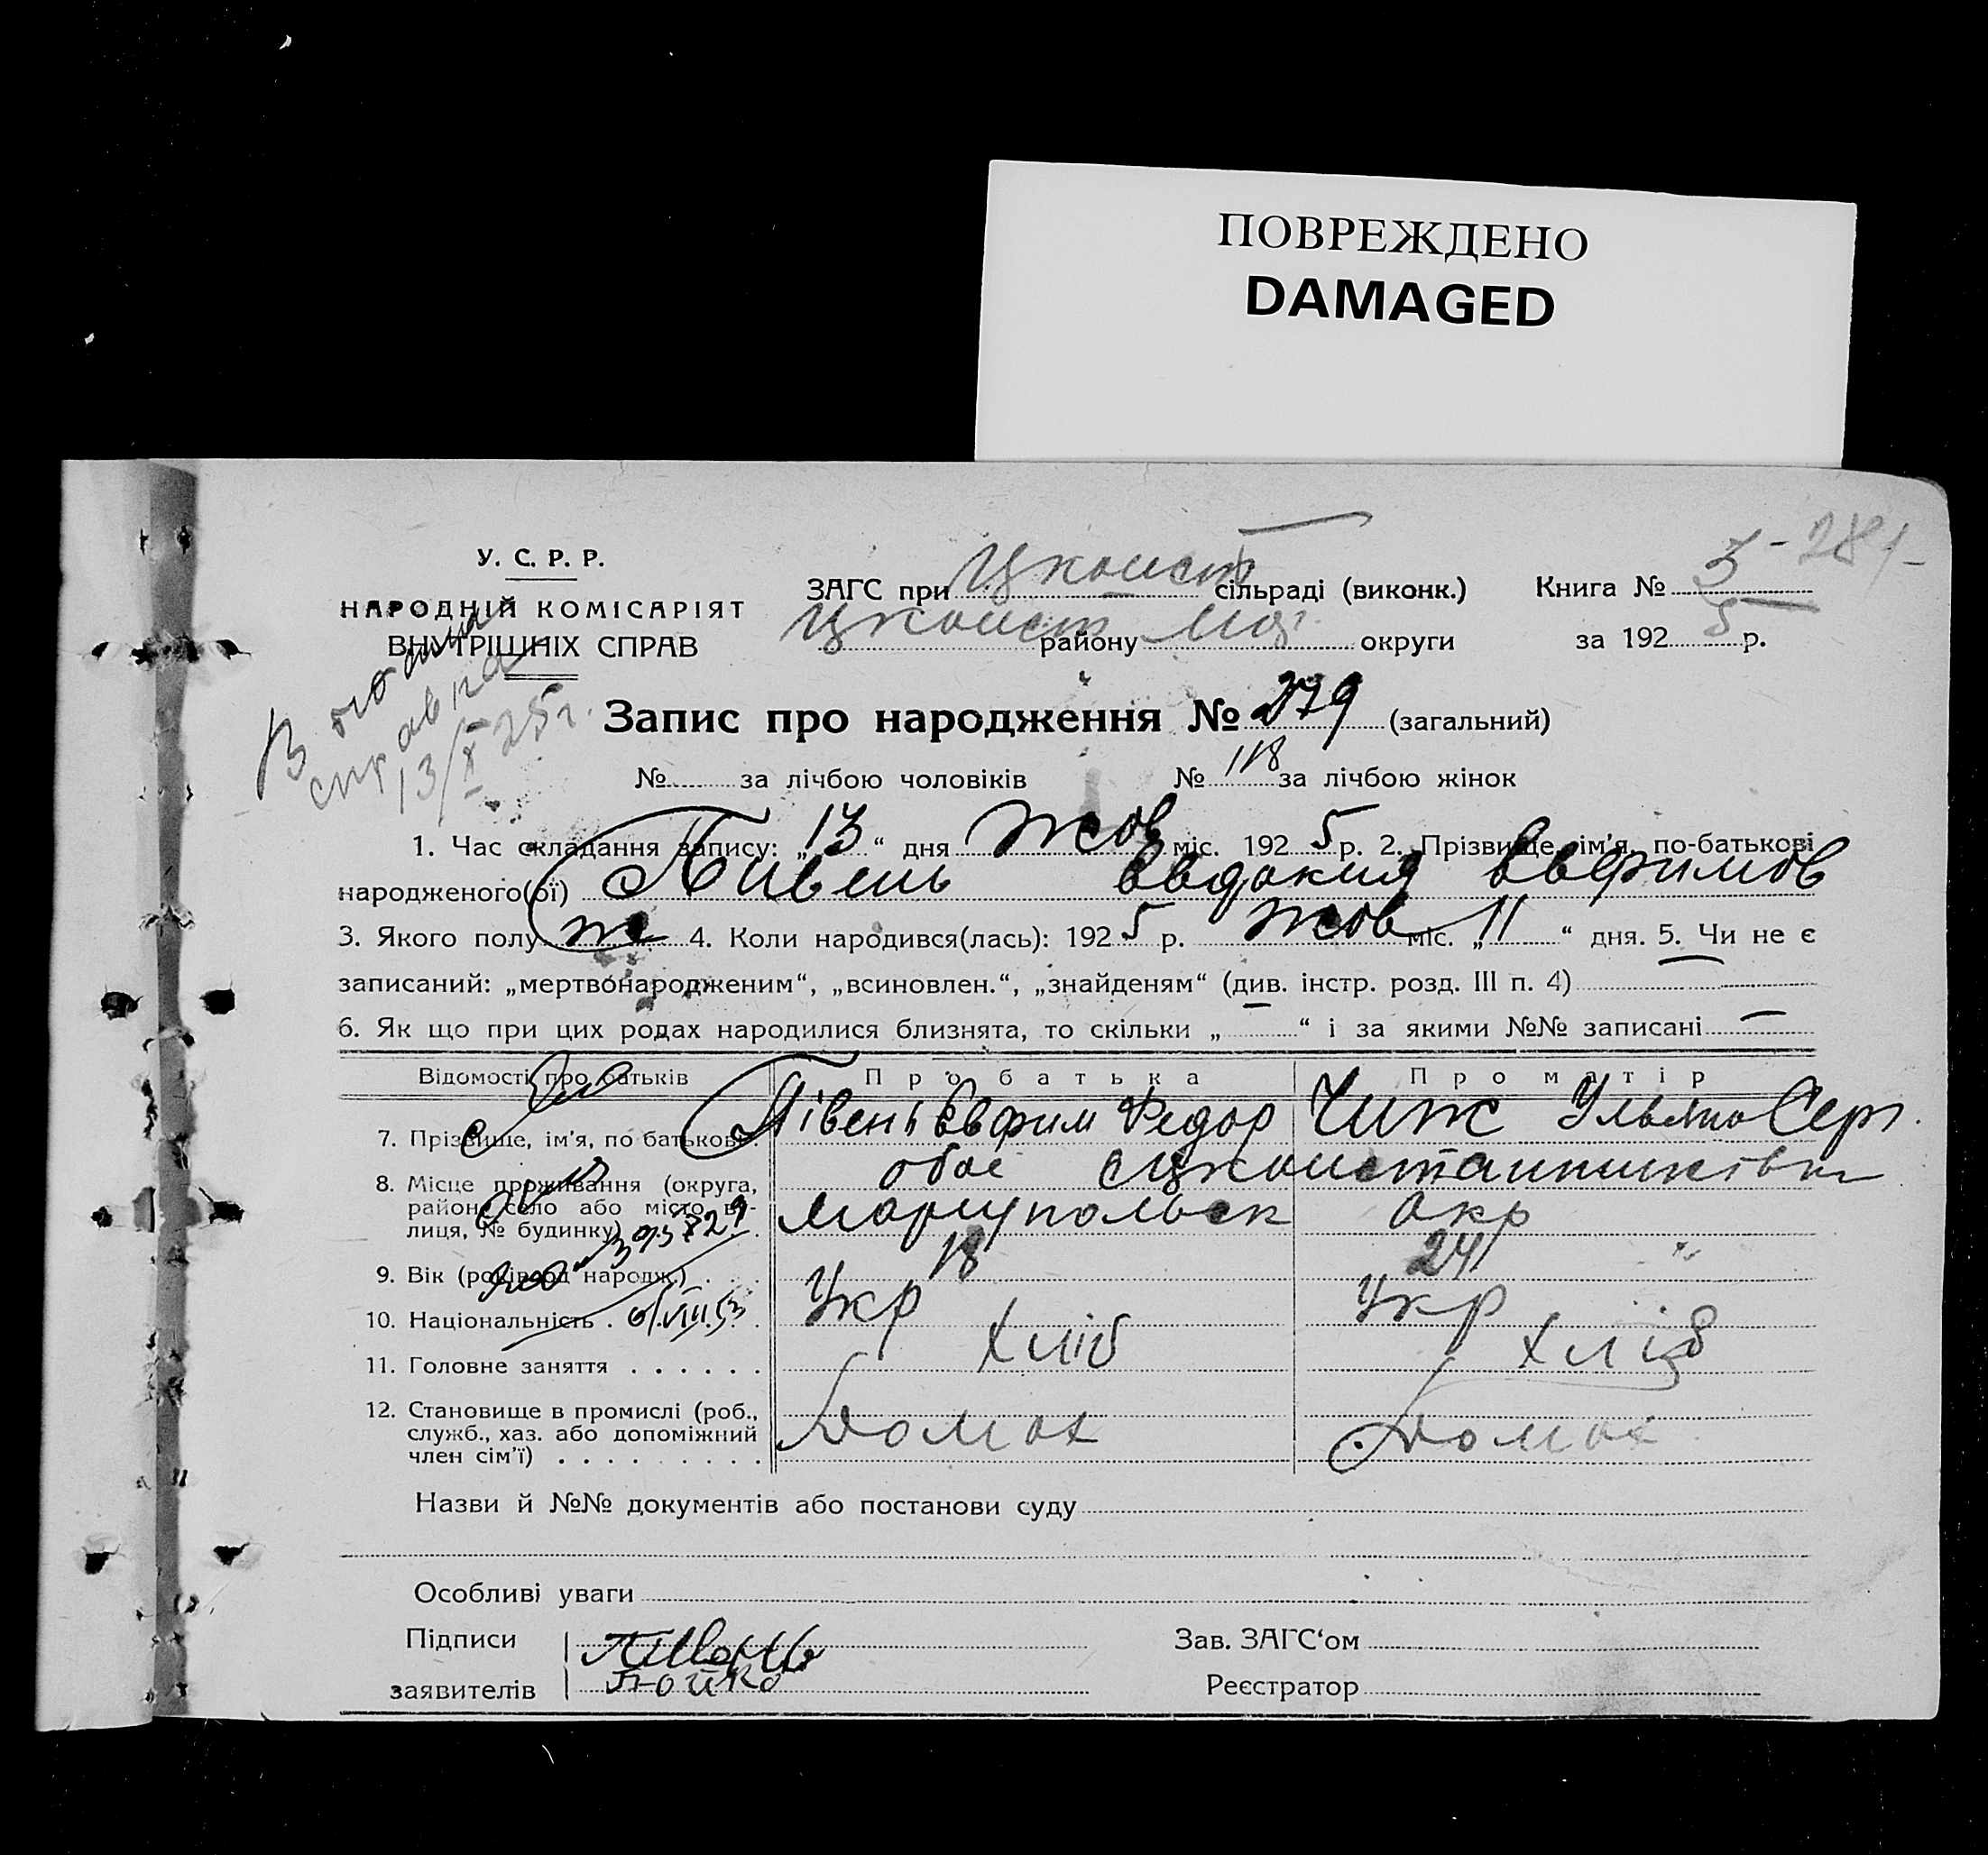 ПОВРЕЖДЕНО
DAMAGED
У. С. Р. Р.
НАРОДНІЙ КОМІСАРІЯТ
ВНУТРІШНІХ СПРАВ
ЗАГС при Цконст сільраді (виконк.)
Цконст району Мар округи
Книга № 3 - 281 -
за 1925 р.
справка
13/X 25 г.
Запис про народження № 279 (загальний)
№ за лічбою чоловіків № 118 за лічбою жінок
1. Час складання запису: „13“ дня Жов міс. 1925 р. 2. Прізвище, ім'я, по-батькові
народженого(ої) Пивень Евдокия Евфимов
3. Якого полу же 4. Коли народився(лась): 1925 р. Жов міс. „11“ дня. 5. Чи не є
записаний: „мертвонародженим“, „всиновлен.“, „знайденям“ (див. інстр. розд. III п. 4) —
6. Як що при цих родах народилися близнята, то скільки „—“ і за якими №№ записані —
Відомості про батьків Про батька Про матір
7. Прізвище, ім'я, по батькові. Півень Евфим Федор Чиж Ульяна Серг.
8. Місце проживання (округа, район, село або місто, ву-лиця, № будинку) обоє с Цконстантинівки
Мариупольск окр
9. Вік (років од народж.) . . . 18 24 "
10. Національність . . . . Укр Укр
11. Головне заняття . . . . . . Хліб Хліб
12. Становище в промислі (роб.,
служб., хаз. або допоміжний
член сім'ї) . . . . . . . . . Помох Помох
Назви й №№ документів або постанови суду
Особливі уваги
Підписи Пивень Зав. ЗАГС‘ом
заявителів Бойко Реєстратор